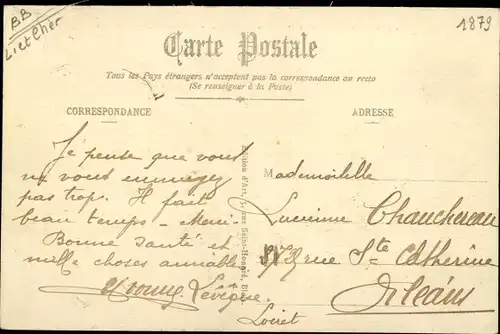 BB
L. et Cher
1879
Carte Postale
Tous les Pays étrangers n'acceptent pas la correspondance au recto
(Se renseigner à la Poste)
CORRESPONDANCE
ADRESSE
Je pense que vous
ne vous ennuyez
pas trop. Il fait
beau temps - Merci
Bonne santé et
mille choses aimables
Lévêque
Mademoiselle
Lucienne Chauchereau
rue Ste Catherine
Orléans
Loiret
Edition d'Art, rue Saint-Honoré,